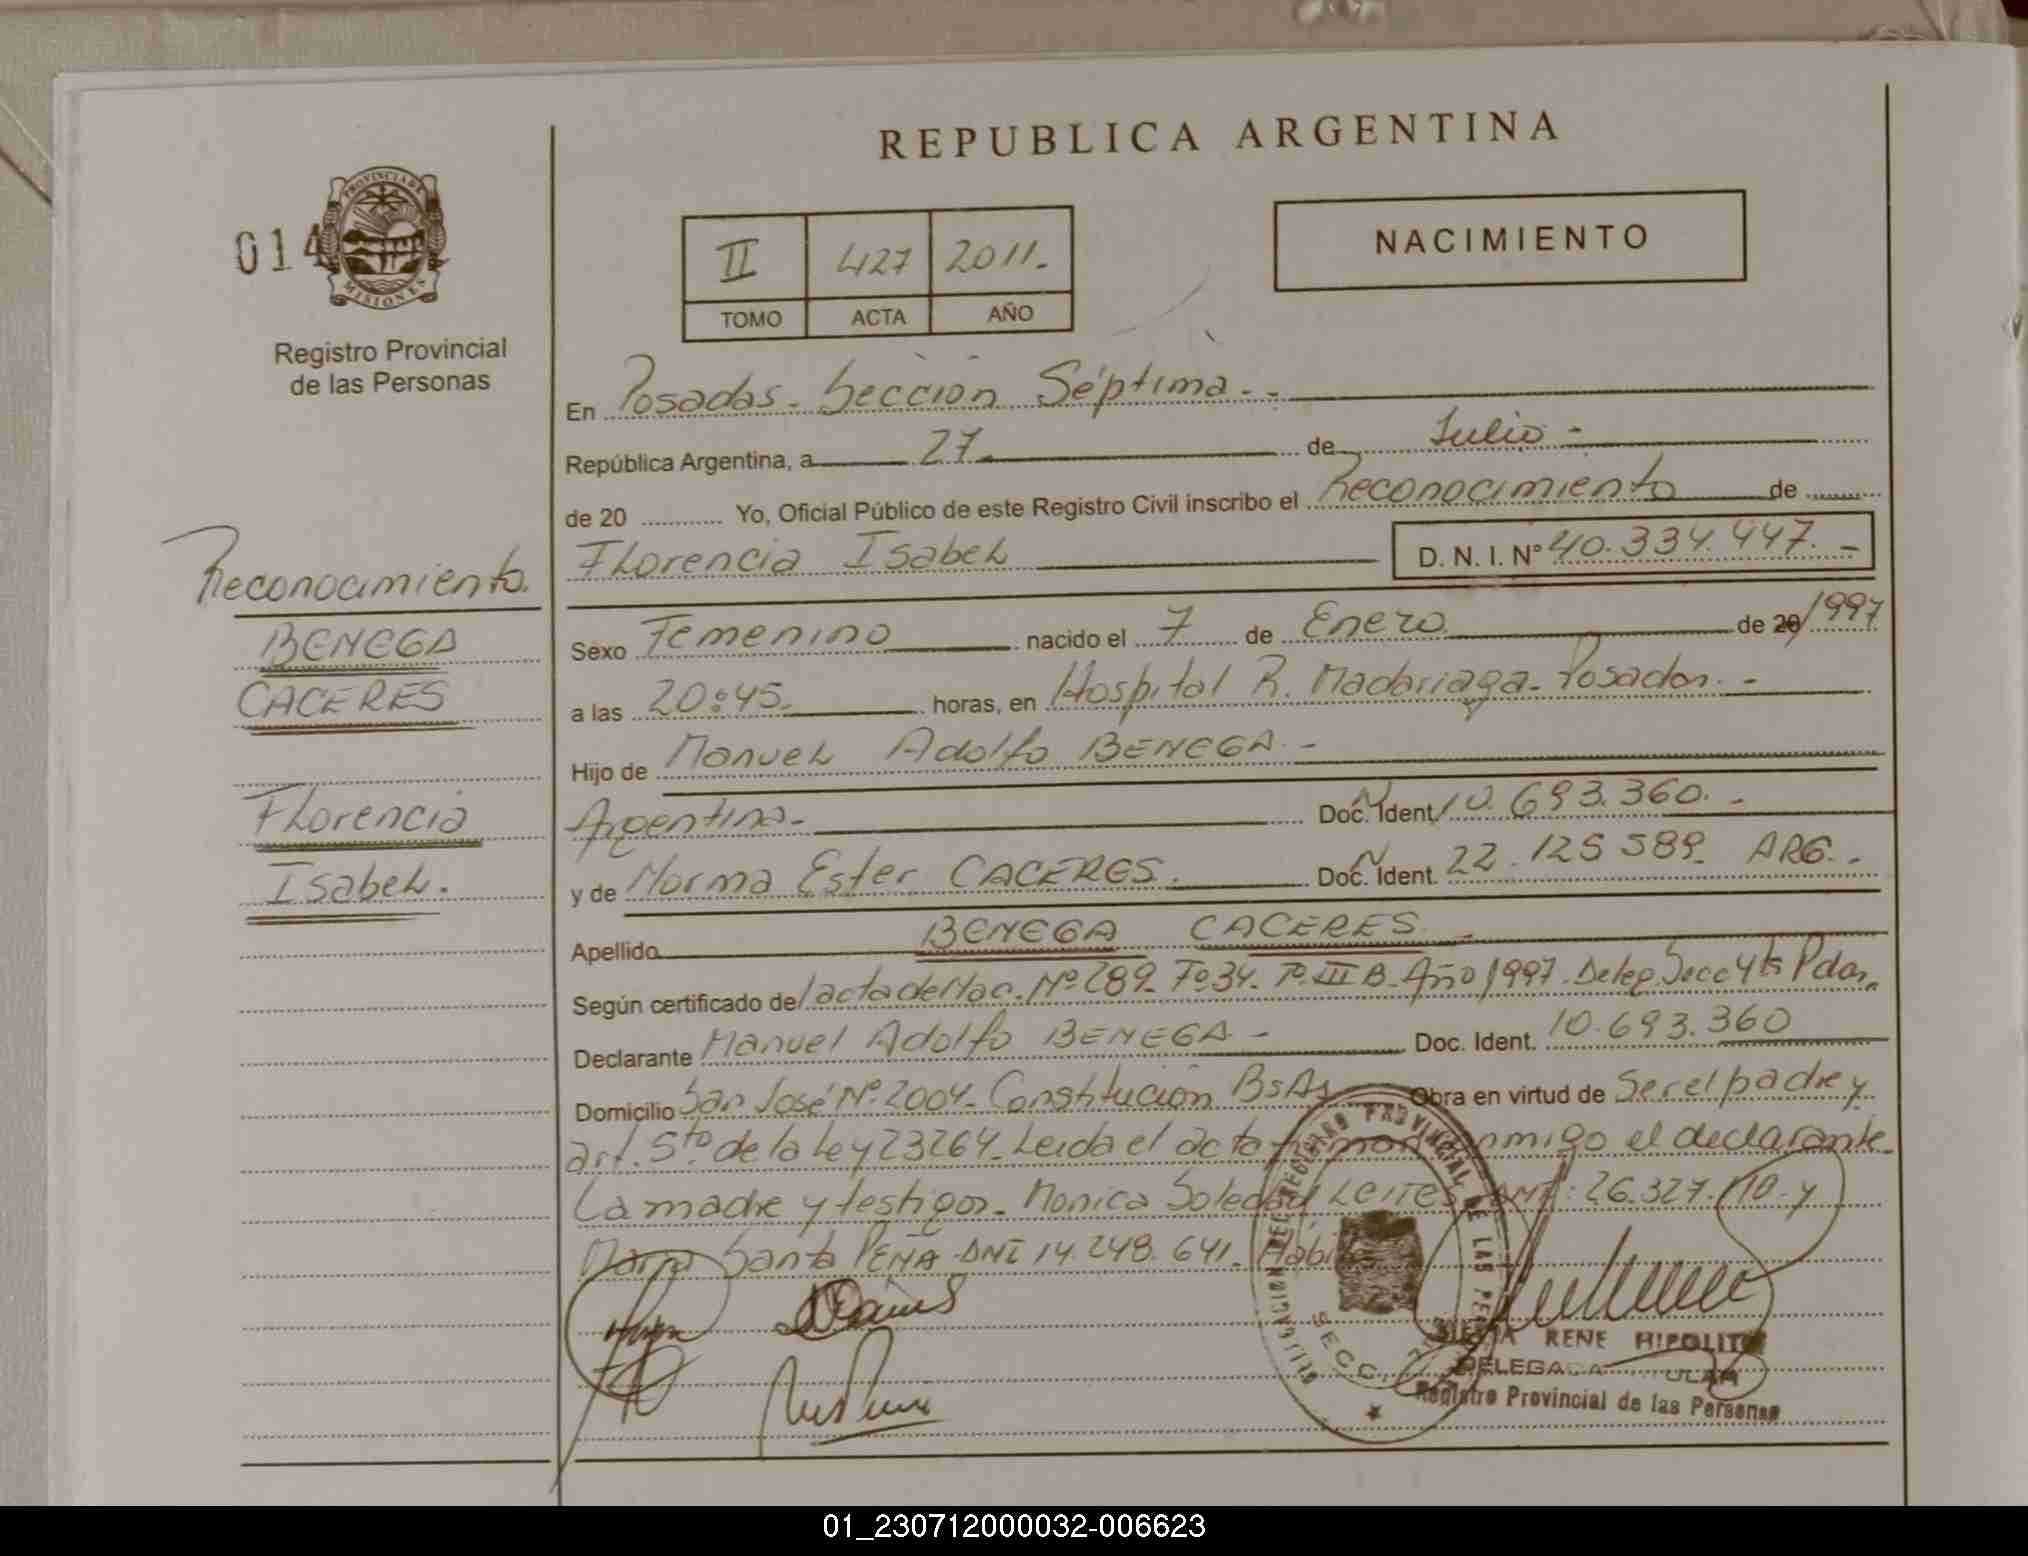 REPUBLICA ARGENTINA
014
PROVINCIA DE
MISIONES
Registro Provincial
de las Personas
II 427 2011.-
TOMO ACTA AÑO
NACIMIENTO
En Posadas - Sección Séptima.-
República Argentina, a 27 de Julio -
de 20 ............ Yo, Oficial Público de este Registro Civil inscribo el Reconocimiento de
Florencia Isabel D. N. I. Nº 40.334.447.-
Reconocimiento.
BENEGA
CACERES
Florencia
Isabel.
Sexo Femenino nacido el 7 de Enero de 20/1997
a las 20:45. horas, en Hospital R. Madariaga - Posadas. -
Hijo de Manuel Adolfo BENEGA. -
Argentina.- Doc. Ident. 10.693.360. -
y de Norma Ester CACERES. Doc. Ident. 22.125 589. ARG. -
Apellido BENEGA CACERES. -
Según certificado de/ acta de Nac. Nº 289. Fº 34. Tº III B. Año 1997. Deleg. Secc 4ta Pdas.
Declarante Manuel Adolfo BENEGA - Doc. Ident. 10.693.360
Domicilio San José Nº 2004 - Constitución BsAs Obra en virtud de Ser el padre y
art. 5to de la Ley 23264 - Leida el acta conmigo el declarante
La madre y testigos - Monica Soledad LEITES DNI: 26.327. y
Maria Santa PEÑA DNI 14.248.641.
DELEGACION DEL REGISTRO PROVINCIAL DE LAS
SECC. 7
RENE HIPOLITO
Registro Provincial de las Personas
01_230712000032-006623